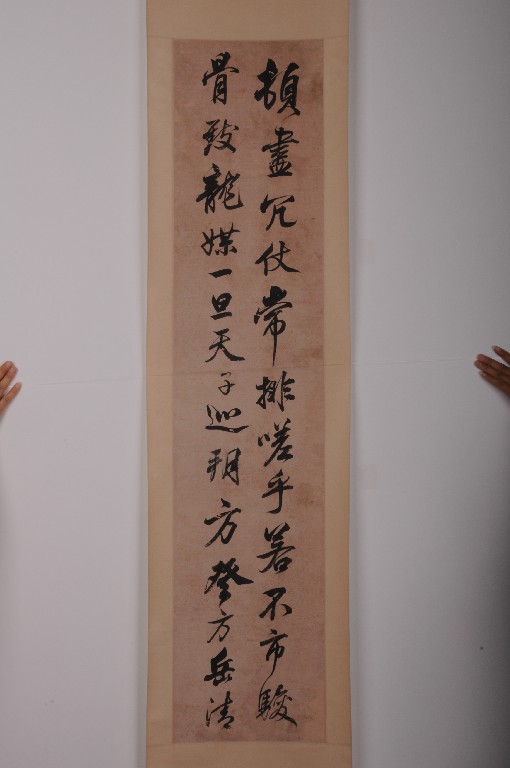 頓盡冗仗常排嗟乎若不市駿
骨致龍媒一旦天子巡朔方登方岳清